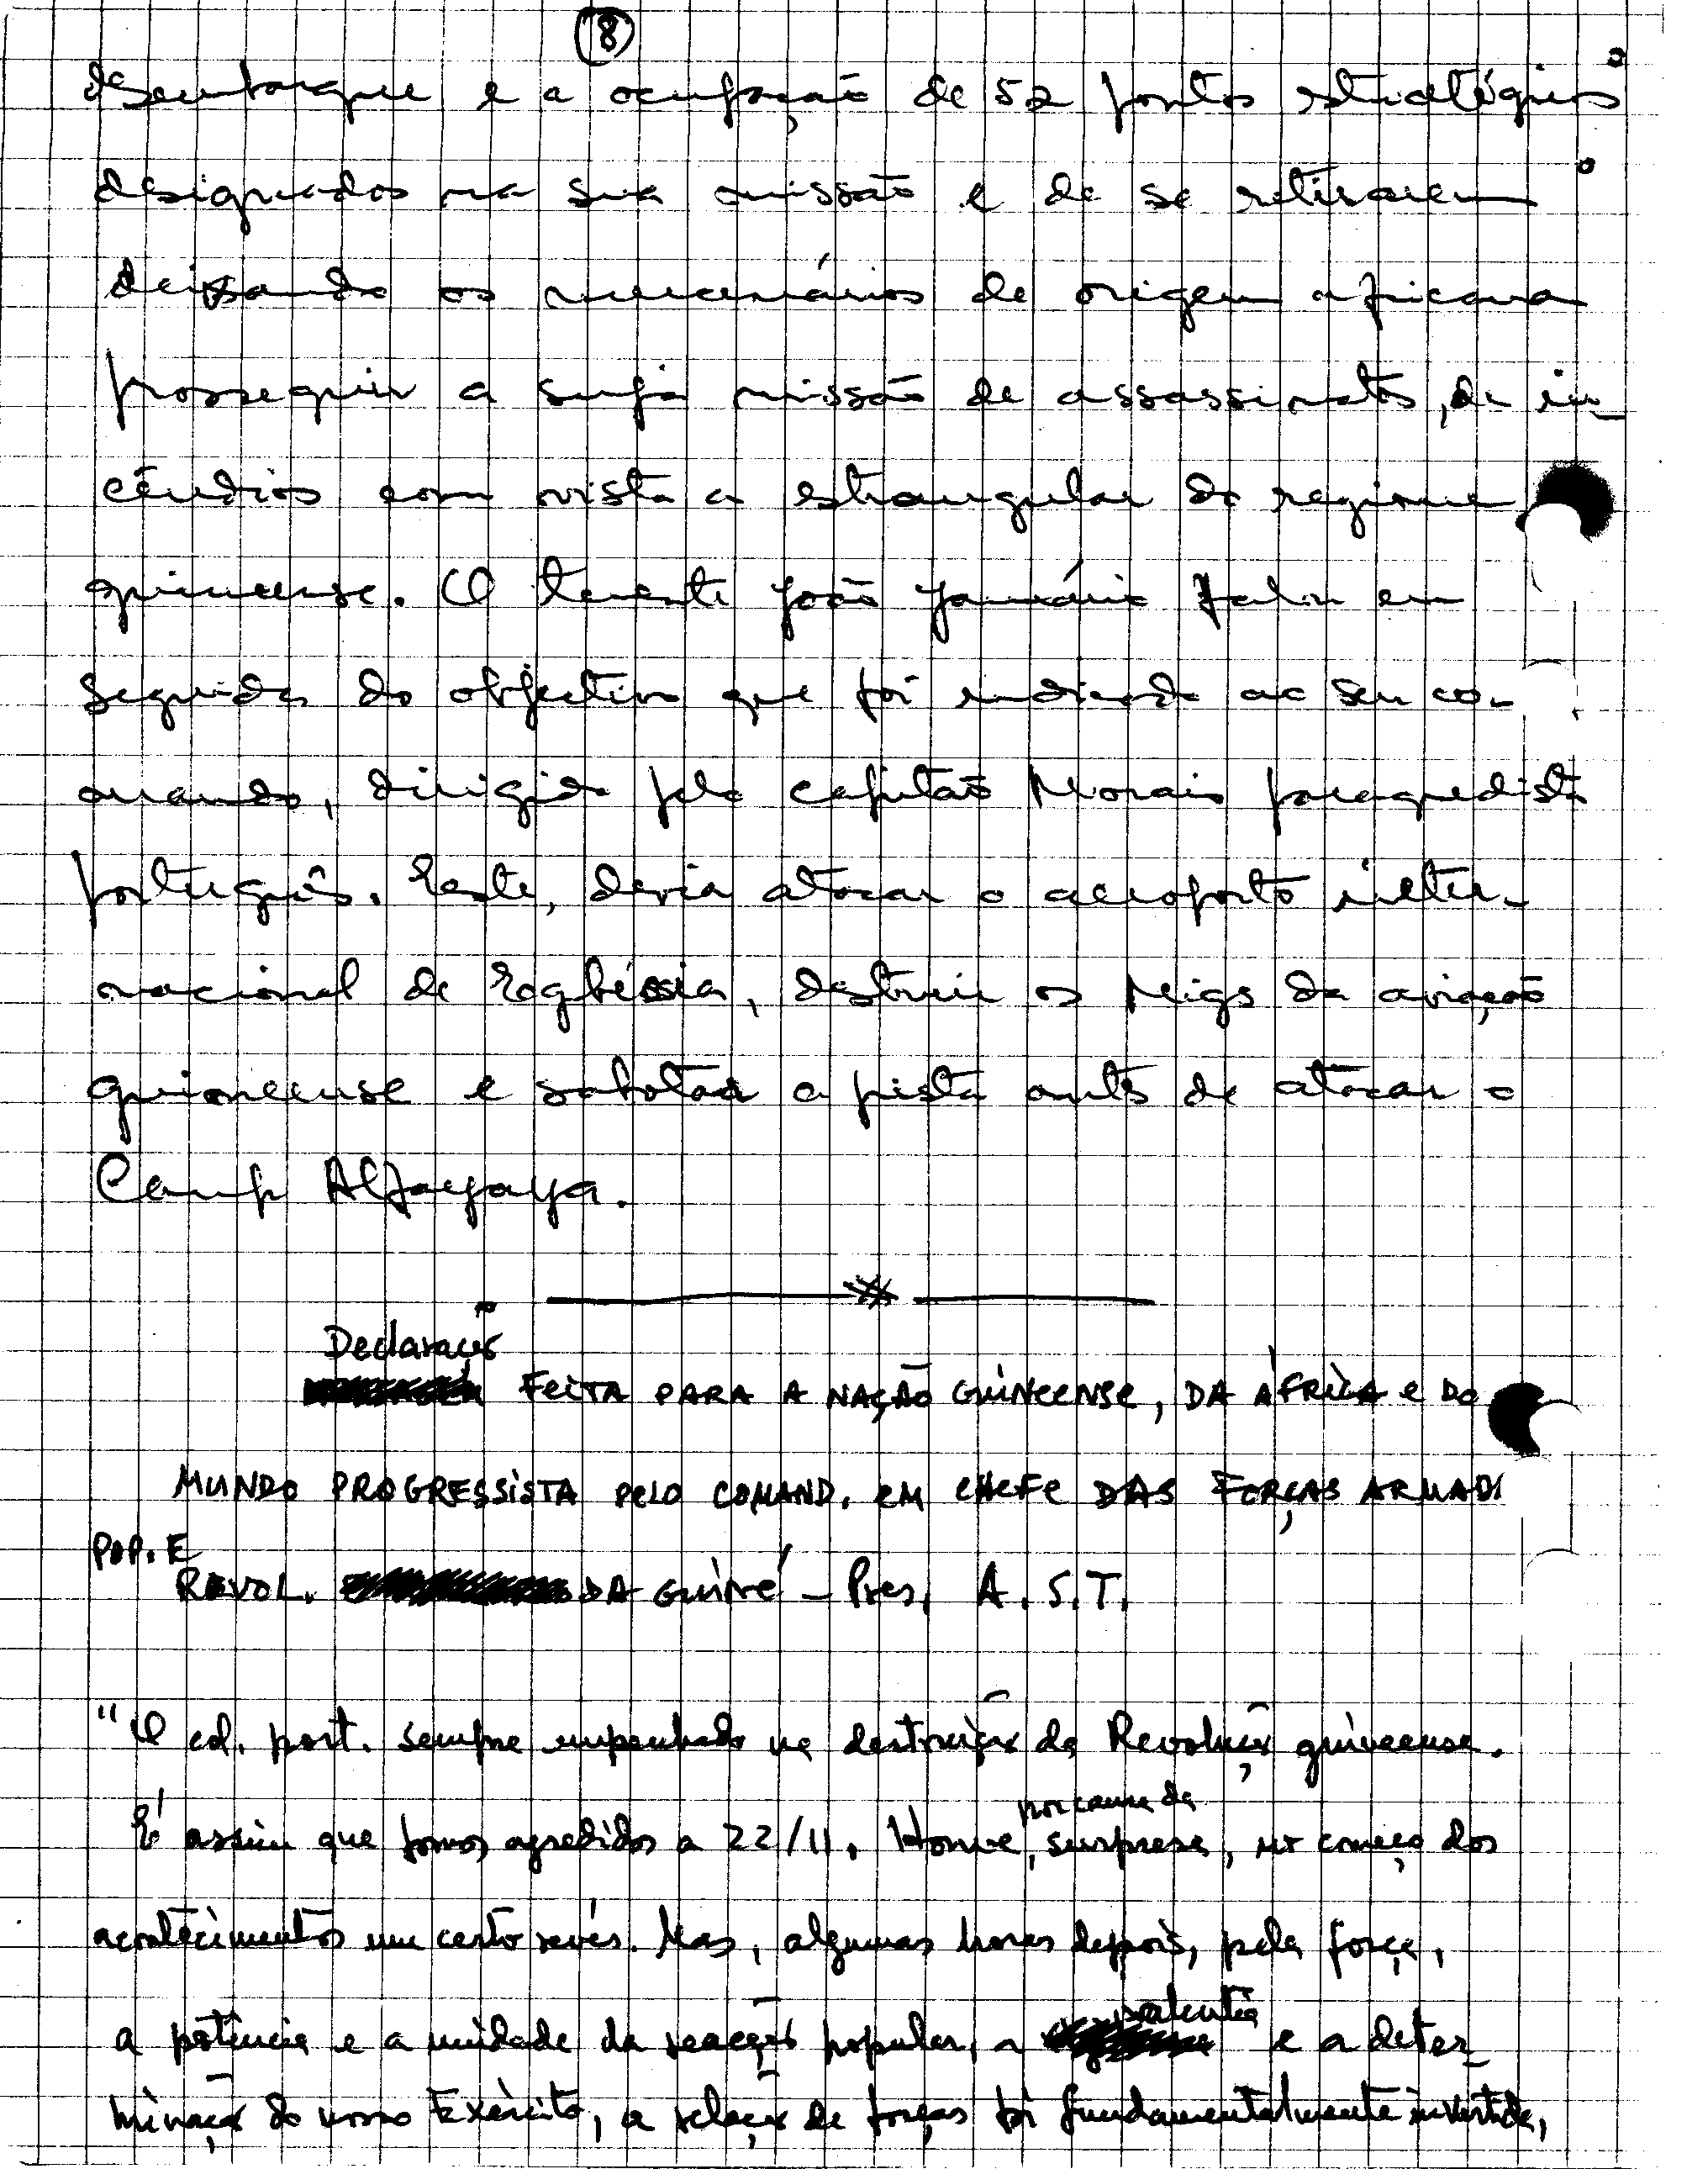 8
desembarque e a ocupação de 52 pontos estratégicos
designados na sua missão e de se retirarem
deixando os mercenários de origem africana
prosseguir a suja missão de assassinatos, de in-
cêndios com vista a estrangular do regime
guineense. O tenente João Januário falou em
seguida do objectivo que foi indicado ao seu co-
mando, dirigido pelo capitão Morais paraquedista
português. Este, devia atacar o aeroporto inter-
nacional de Gbéssia, destruir os Migs da aviação
guineense e sabotar a pista antes de atacar o
Camp Alfayaya.
Declaração
FEITA PARA A NAÇÃO GUINEENSE, DA ÁFRICA E DO
MUNDO PROGRESSISTA PELO COMAND. EM CHEFE DAS FORÇAS ARMAD
POP. E
REVOL. DA GUINÉ - Pres. A.S.T.
"O col. port. sempre empenhado na destruição da Revolução guineense.
É assim que fomos agredidos a 22/11. Houve, por causa da surpresa, no começo dos
acontecimentos um certo revés. Mas, algumas horas depois, pela força,
a potência e a unidade da reacção popular, a valentia e a deter-
minação do nosso Exército, a relação de forças foi fundamentalmente invertida,